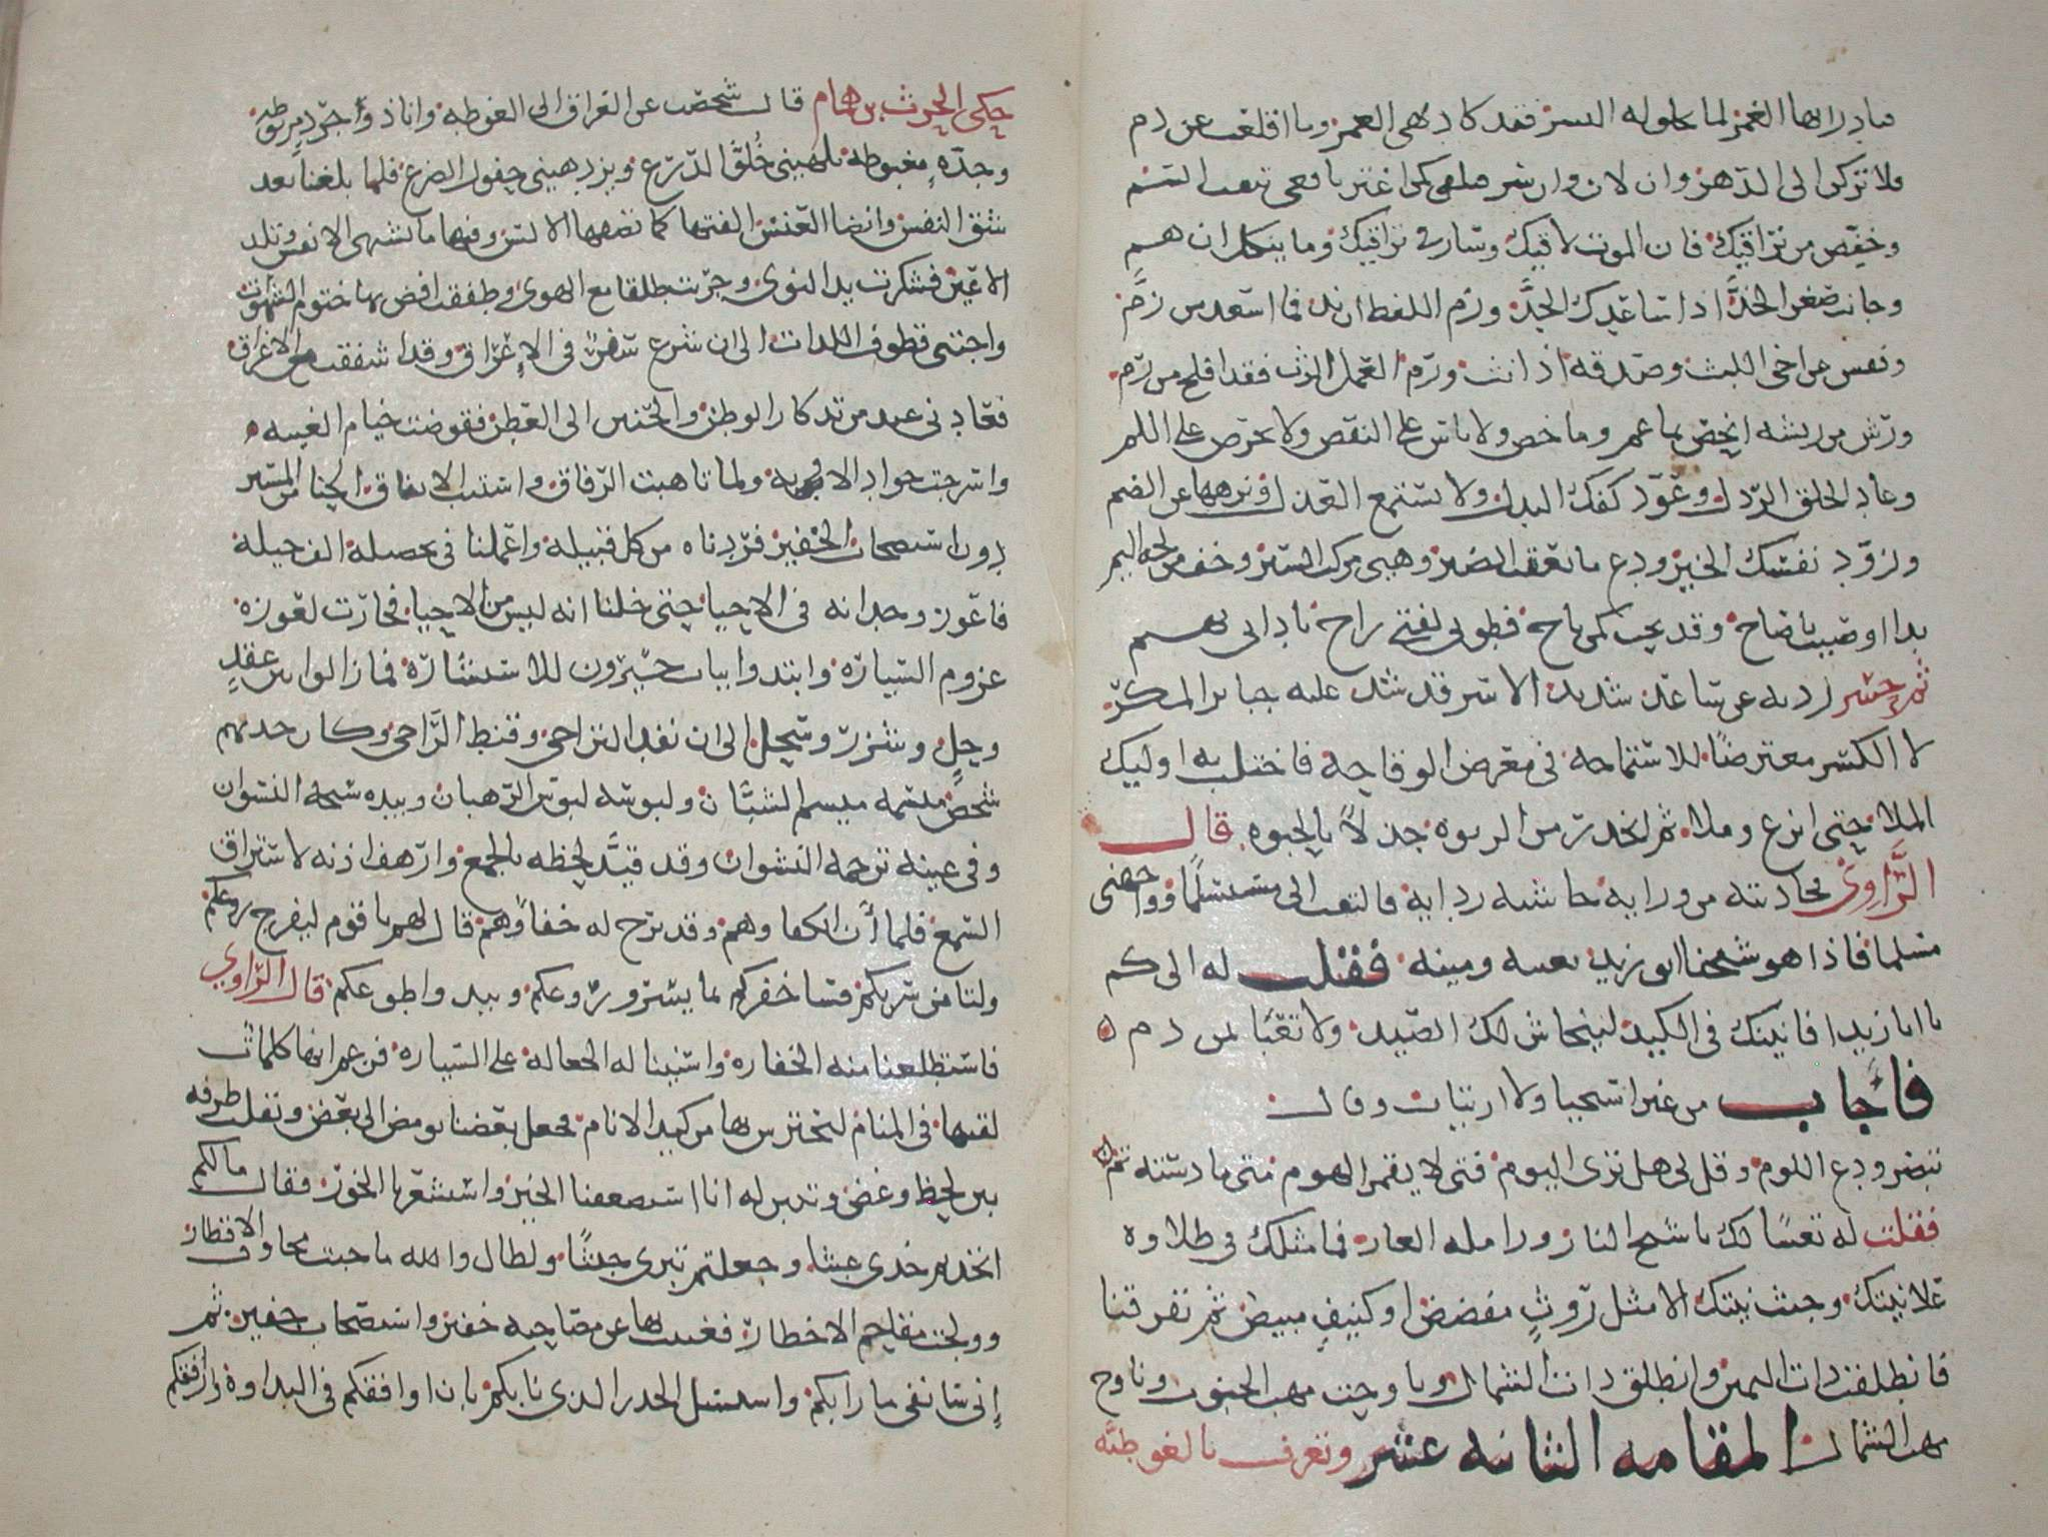 فبادر ايها الغمر لما يحلو له المر فقد كاد يهي العمر وما اقلعت عن ذم
ولا تركن الى الدهر وان لان وان سر فتلفى كمن اغتر بافعى تنفث السم
وخفض من تراقيك فان الموت لاقيك وسار في تراقيك وما ينكل ان هم
وجانب صعر الخد اذا ساعدك الجد وزم اللفظ ان ند فما اسعد من زم
ونفس عن اخي البث وصدقه اذا نث ورم العمل الرث فقد افلح من رم
ورش من ريشه انحص بما عم وما خص ولا تاس على النقص ولا تحرص على اللم
وعاد الخلق الرذل وعود كفك البذل ولا تستمع العذل ونزهها عن الضم
وزود نفسك الخير ودع ما يعقب الضير وهيئ مركب السير وخف من لجة اليم
بذا اوصيت يا صاح وقد بحت كمن باح فطوبى لفتى راح بادابي يهم
ثم حسر ردنه عن ساعد شديد الاسر قد شد عليه جباير المكر
لا الكسر معترضا للاستماحة في معرض الوقاحة فاختلب به اوليك
الملا حتى اترع وملا ثم انحدر من الربوة جذلا بالحبوة قال
الراوي فجاذبته من ورايه حاشية ردايه فالتفت الي مستسلما وواجهني
مسلما فاذا هو شيخنا ابو زيد بعينه ومينه فقلت له الى كم
يا ابا زيد افانينك في الكيد لينحاش لك الصيد ولا تعبا بمن ذم
فاجاب من غير استحيا ولا ارتيات وقال
تبصر ودع اللوم وقل لي هل ترى اليوم فتى لا يقمر القوم متى ما دسته تم
فقلت له تعسا لك يا شيخ النار وزاملة العار فما مثلك في طلاوة
علانيتك وخبث نيتك الا مثل روث مفضض او كنيف مبيض ثم تفرقنا
فانطلقت ذات اليمين وانطلق ذات الشمال وناوحت مهب الجنوب وناوح
مهب الشمال المقامة الثانية عشر وتعرف بالغوطية
حكى الحرث بن همام قال شخصت من العراق الى الغوطة وانا ذو جرد مربوطة
وجدة مغبوطة يلهيني خلو الذرع ويزدهيني حفول الضرع فلما بلغتها بعد
شق النفس وانضا العنس الفيتها كما تصفها الالسن وفيها ما تشتهي الانفس وتلذ
الاعين فشكرت يد النوى وجريت طلقا مع الهوى وطفقت افض بها ختوم الشهوات
واجتني قطوف اللذات الى ان شرع سفر في الاعراق وقد اشفقت من الاغراق
فعادني عيد من تذكار الوطن والحنين الى العطن فقوضت خيام الغيبة
واسرجت جواد الاوبة ولما تاهبت الرفاق واستتب الاتفاق الحنا من المسير
دون استصحاب الخفير فردناه من كل قبيلة واعملنا في تحصيله الف حيلة
فاعوز وجدانه في الاحيا حتى خلنا انه ليس من الاحيا فحارت لعوزه
عزوم السيارة وانتدوا بباب جيرون للاستشارة فما زالوا بين عقد
وحل وشزر وسحل الى ان نفد التناجي وقنط الراجي وكان حذتهم
شخص ميسمه ميسم الشبان ولبوسه لبوس الرهبان وبيده سبحة النسوان
وفي عينه ترجمة النشوان وقد قيد لحظه بالجمع وارهف اذنه لاستراق
السمع فلما آن انكفاوهم وقد برح له خفاوهم قال لهم يا قوم ليفرج روعكم
وليامن سربكم فساخفركم بما يسرو روعكم ويبدو طوعكم قال الراوي
فاستطلعنا منه الخفارة واسنينا له الجعالة على السيارة فزعم انها كلمات
لقنها في المنام ليحترس بها من كيد الانام فجعل بعضنا يومض الى بعض ويقلب طرفه
بين لحظ وغض وتبين له انا استضعفنا الخبر واستشعرنا الخور فقال ما لكم
اتخذتم جدي عبثا وجعلتم تبري خبثا ولطال والله ما جبت مخاوف الاقطار
وولجت مقاحم الاخطار فغنيت بها عن مصاحبة خفير واستصحاب جفير ثم
اني سانفي ما رابكم واستسل الحذر الذي نابكم بان اوافقكم في البداوة وارافقكم